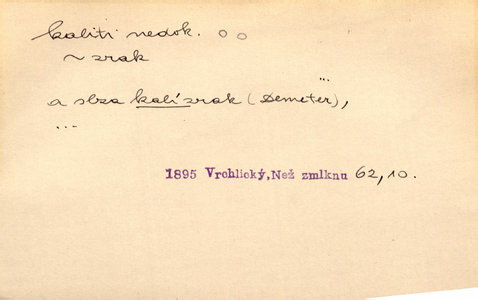 kaliti nedok. o o
~ zrak
...
a slza kalí zrak (Demeter),
...
1895 Vrchlický,Než zmlknu 62,10.